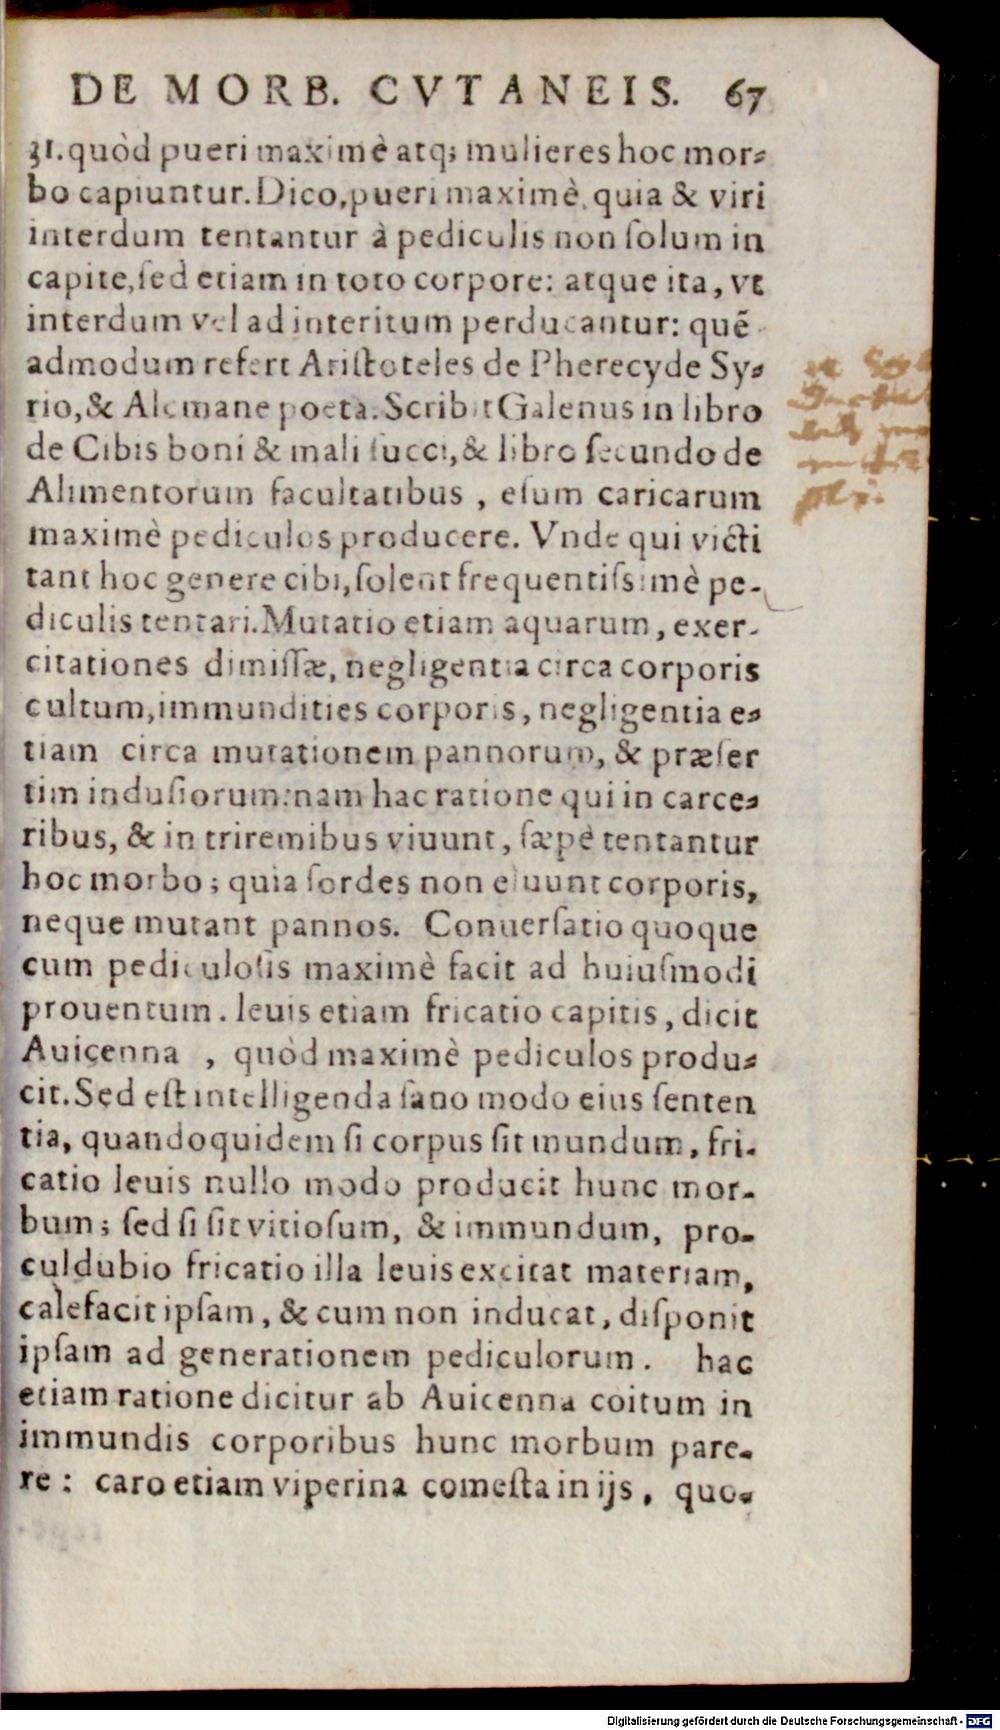 DE MORB. CVTANEIS. 67
31. quòd pueri maximè atq; mulieres hoc mor-
bo capiuntur. Dico, pueri maximè, quia & viri
interdum tentantur à pediculis non ſolum in
capite, ſed etiam in toto corpore: atque ita, vt
interdum vel ad interitum perducantur: quē
admodum refert Ariſtoteles de Pherecyde Sy-
rio, & Alcmane poeta. Scribit Galenus in libro
de Cibis boni & mali ſucci, & libro ſecundo de
Alimentorum facultatibus, eſum caricarum
maximè pediculos producere. Vnde qui victi
tant hoc genere cibi, ſolent frequentiſsimè pe-
diculis tentari. Mutatio etiam aquarum, exer-
citationes dimiſſæ, negligentia circa corporis
cultum, immundities corporis, negligentia e-
tiam circa mutationem pannorum, & præſer
tim induſiorum: nam hac ratione qui in carce-
ribus, & in triremibus viuunt, ſæpè tentantur
hoc morbo; quia ſordes non eluunt corporis,
neque mutant pannos. Conuerſatio quoque
cum pediculoſis maximè facit ad huiuſmodi
prouentum. leuis etiam fricatio capitis, dicit
Auicenna, quòd maximè pediculos produ-
cit. Sed eſt intelligenda ſano modo eius ſenten
tia, quandoquidem ſi corpus ſit mundum, fri-
catio leuis nullo modo producit hunc mor-
bum; ſed ſi ſit vitioſum, & immundum, pro-
culdubio fricatio illa leuis excitat materiam,
calefacit ipſam, & cum non inducat, diſponit
ipſam ad generationem pediculorum. hac
etiam ratione dicitur ab Auicenna coitum in
immundis corporibus hunc morbum pare-
re: caro etiam viperina comeſta in ijs, quo-
Digitalisierung gefördert durch die Deutsche Forschungsgemeinschaft - DFG